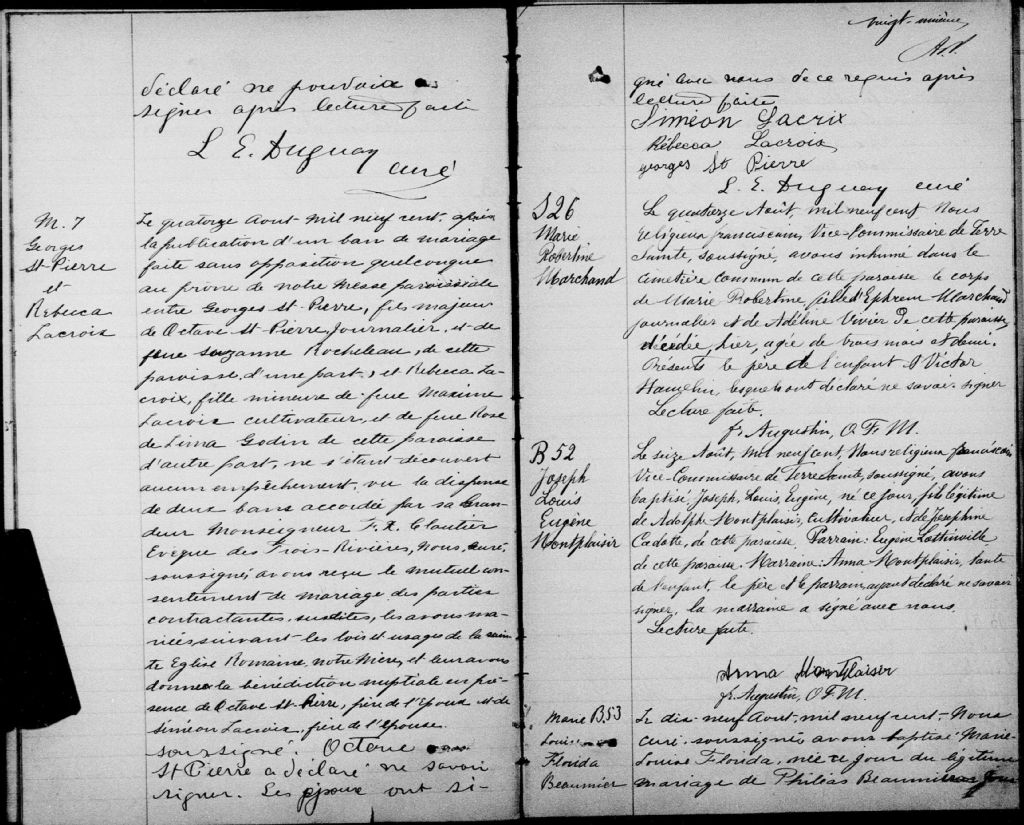 déclaré ne pouvoir
signer après lecture faite
L. E. Duguay
curé
M. 7
Georges
St-Pierre
et
Rebecca
Lacroix
Le quatorze Aout mil neuf cent, après
la publication d'un ban de mariage
faite sans opposition quelconque
au prône de notre Messe paroissiale
entre Georges St-Pierre, fils majeur
de Octave St-Pierre, journalier, et de
feue Suzanne Rocheleau, de cette
paroisse, d'une part, et Rebecca La-
croix, fille mineure de feu Maxime
Lacroix cultivateur, et de feue Rose
de Lima Godin de cette paroisse
d'autre part, ne s'étant découvert
aucun empêchement, vu la dispense
de deux bans accordée par sa Gran-
deur Monseigneur F. X. Cloutier
Evêque des Trois-Rivières, Nous, curé,
soussigné, avons reçu le mutuel con-
sentement de mariage des parties
contractantes, susdites, les avons ma-
riés, suivant les lois et usages de la sain-
te Eglise Romaine, notre Mère, et leur avons
donné la bénédiction nuptiale en pré-
sence de Octave St-Pierre, père de l'époux et de
Siméon Lacroix, frère de l'épouse
soussigné. Octave
St Pierre a déclaré ne savoir
signer. Les époux ont si-
vingt-unième
gné avec nous de ce requis après
lecture faite
Siméon Lacrix
Rébecca Lacroix
georges St Pierre
L. E. Duguay curé
S 26
Marie
Robertine
Marchand
Le quatorze Août, mil neuf cent Nous
religieux franciscain, Vice-Commissaire de Terre
Sainte, soussigné, avons inhumé dans le
cimetière commun de cette paroisse le corps
de Marie Robertine fille d'Ephrem Marchand
journalier et de Adéline Vivier de cette paroisse,
décédée, hier, agée de trois mois et demi.
Présents le père de l'enfant & Victor
Hamelin, lesquels ont déclaré ne savoir signer
Lecture faite.
fr. Augustin, O.F.M.
B 52
Joseph
Louis
Eugène
Montplaisir
Le seize Août, mil neuf cent, Nous religieux franciscain
Vice-Commissaire de Terre Sainte, soussigné, avons
baptisé Joseph, Louis, Eugène, né ce jour, fils légitime
de Adolphe Montplaisir, cultivateur, et de Josephine
Cadotte, de cette paroisse. Parrain: Eugène Lottinville
de cette paroisse. Marraine: Anna Montplaisir, tante
de l'enfant, le père et le parrain ayant déclaré ne savoir
signer, la marraine a signé avec nous.
Lecture faite.
Anna Montplaisir
fr. Augustin, O.F.M.
Marie B.53
Louise
Florida
Beaumier
Le dix-neuf Aout, mil neuf cent, Nous
curé, soussigné, avons baptisé Marie-
Louise Florida, née ce jour du légitime
mariage de Philias Beaumier